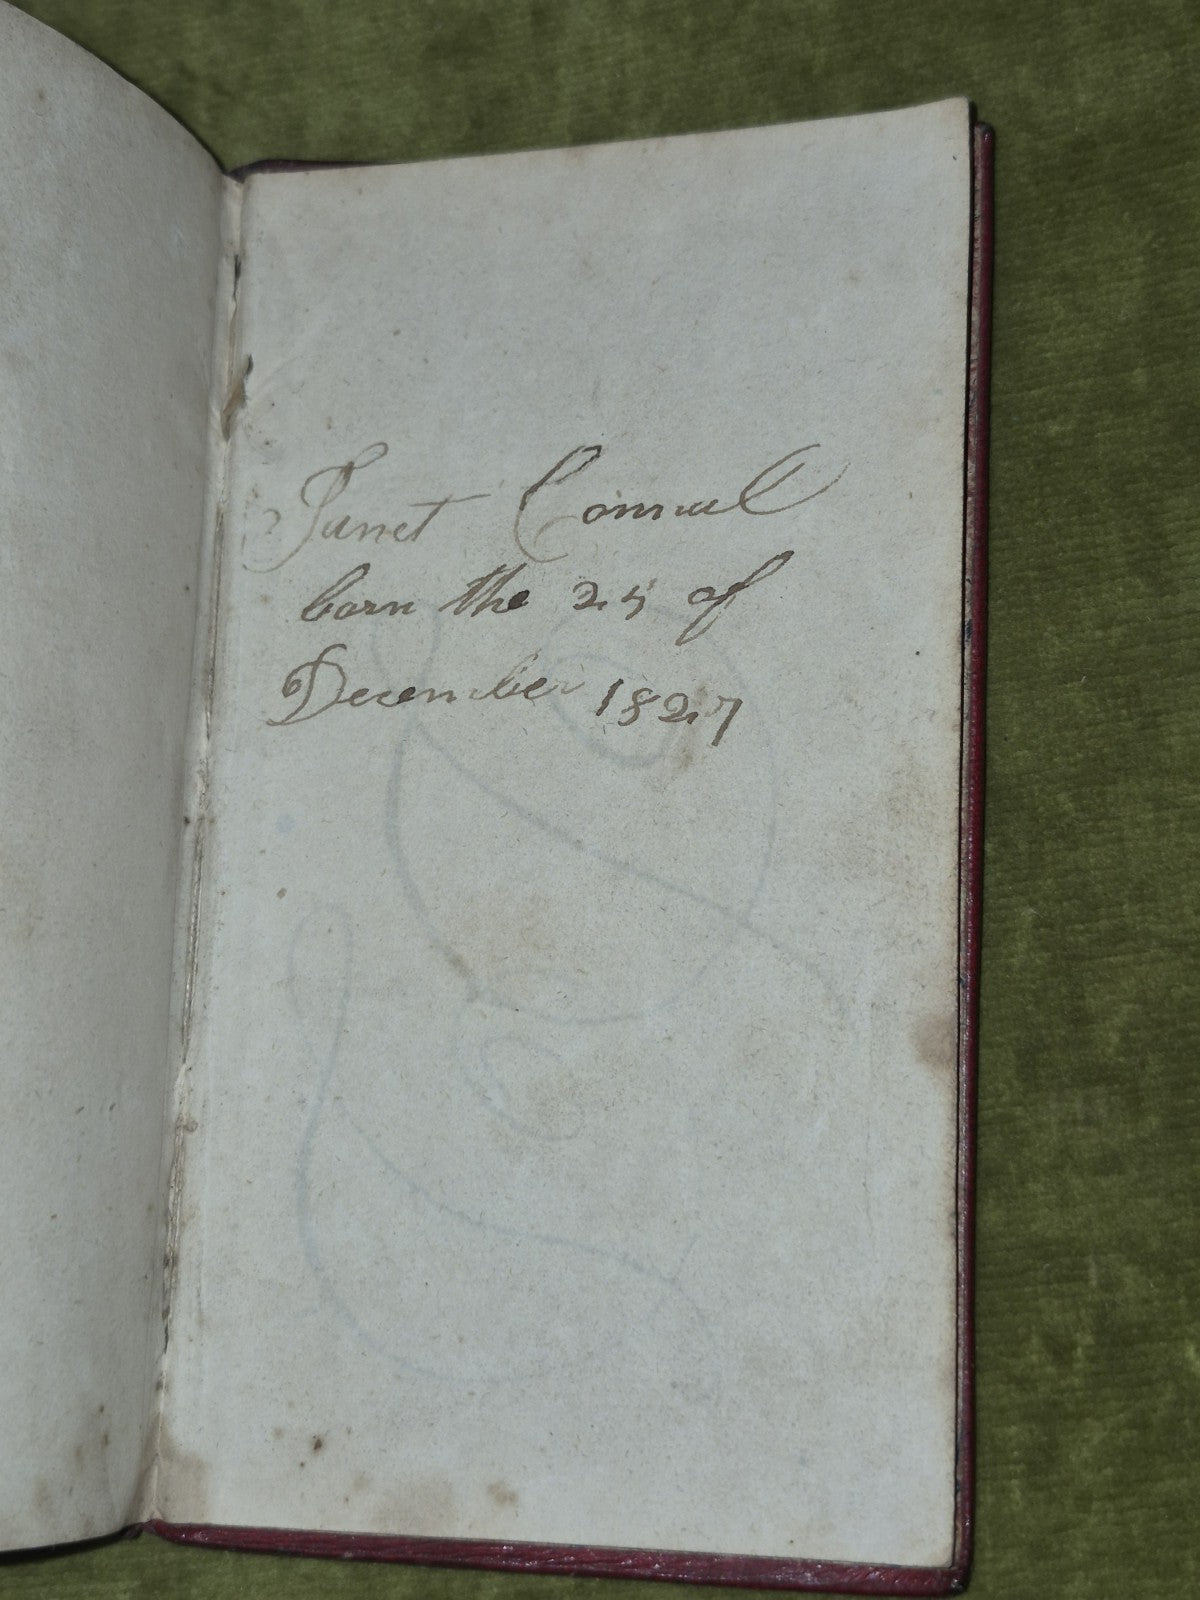 Janet Connal
born the 25 of
December 1827